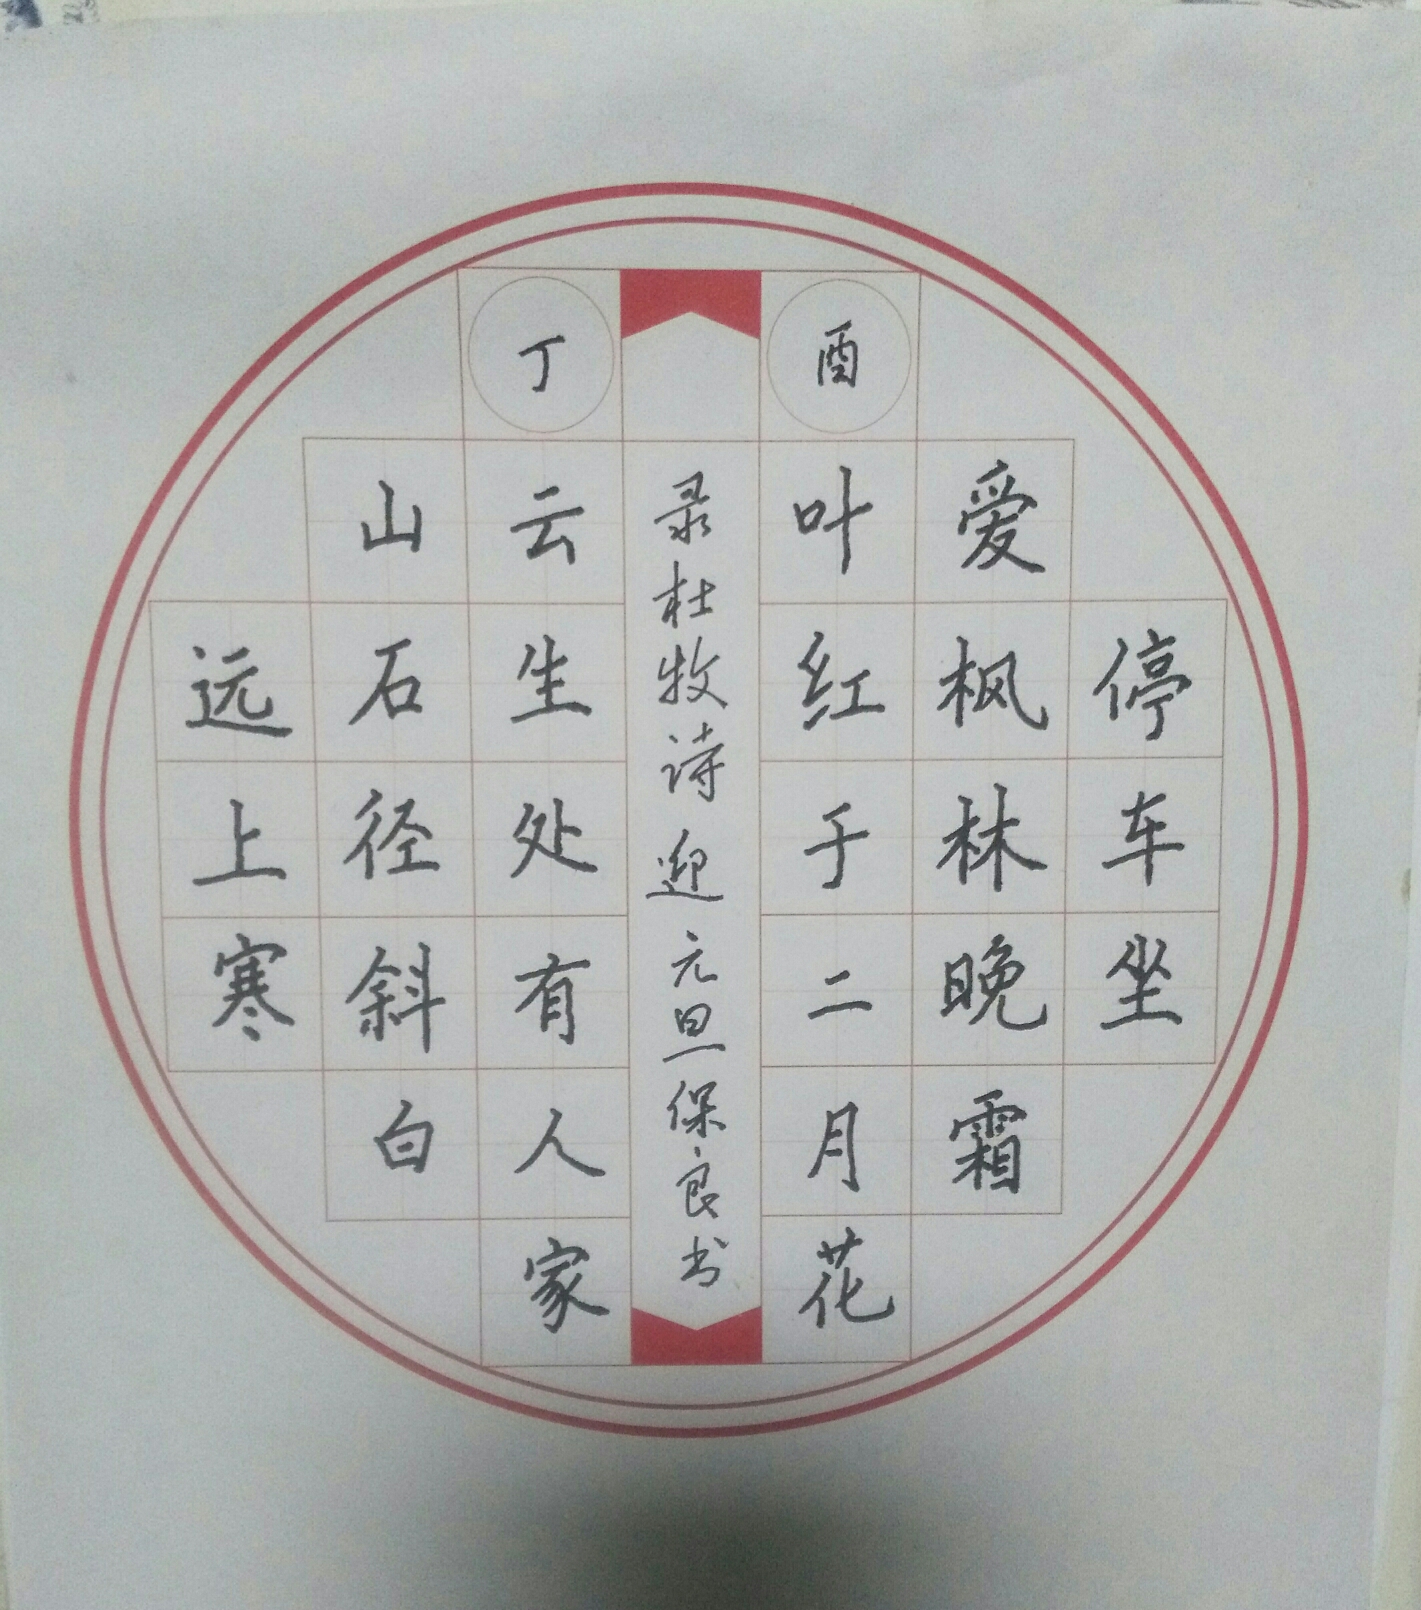 远上寒
山石径斜白
丁
云生处有人家
录杜牧诗迎元旦保良书
酉
叶红于二月花
爱枫林晚霜
停车坐